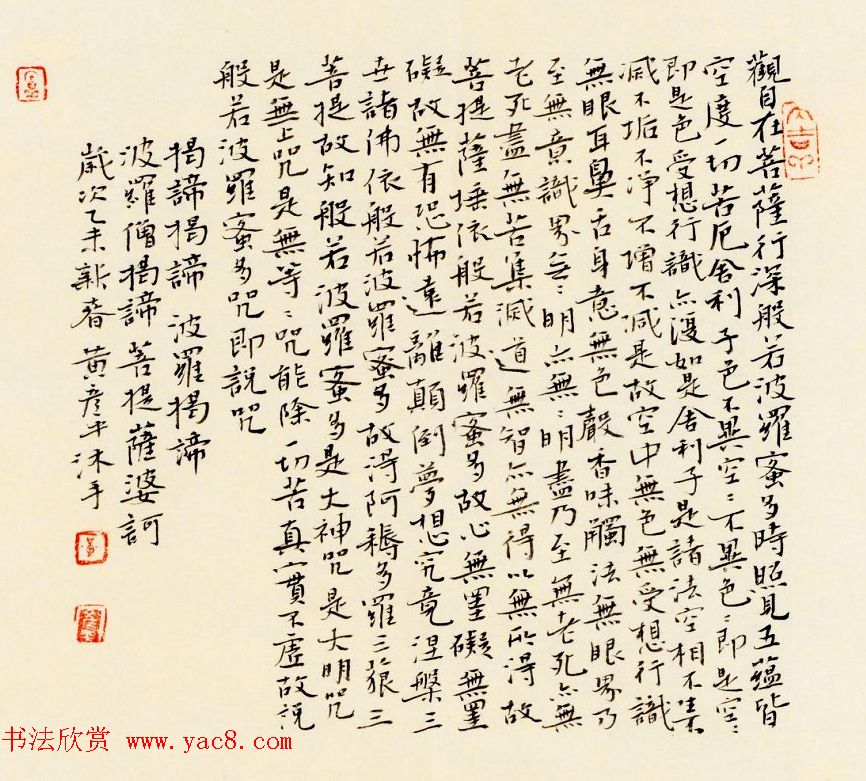 觀自在菩薩行深般若波羅蜜多時照見五蘊皆
空度一切苦厄舍利子色不異空〻不異色〻即是空〻
即是色受想行識亦復如是舍利子是諸法空相不生
滅不垢不淨不增不減是故空中無色無受想行識
無眼耳鼻舌身意無色聲香味觸法無眼界乃
至無意識界無〻明亦無〻明盡乃至無老死亦無
老死盡無苦集滅道無智亦無得以無所得故
菩提薩埵依般若波羅蜜多故心無罣礙無罣
礙故無有恐怖遠離顛倒夢想究竟涅槃三
世諸佛依般若波羅蜜多故得阿耨多羅三藐三
菩提故知般若波羅蜜多是大神咒是大明咒
是無上咒是無等〻咒能除一切苦真實不虛故說
般若波羅蜜多咒即說咒
揭諦揭諦 波羅揭諦
波羅僧揭諦 菩提薩婆訶
歲次乙未新春 黃彥平沐手
书法欣赏 www.yac8.com